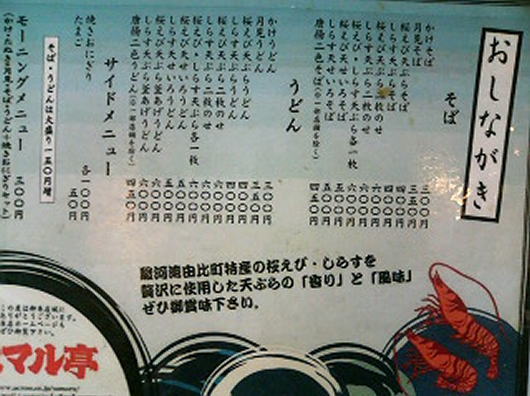 おしながき
そば
かけそば 三〇〇円
月見そば 三五〇円
桜えび天ぷらそば 四〇〇円
しらす天ぷらそば 四〇〇円
桜えび天ぷら二枚のせ 六〇〇円
しらす天ぷら二枚のせ 六〇〇円
桜えび・しらす天ぷら各一枚 六〇〇円
桜えび天せいろそば
しらす天せいろそば
唐揚二色そば(※一部店舗を除く) 四五〇円
うどん
かけうどん 三〇〇円
月見うどん 三五〇円
桜えび天ぷらうどん 四〇〇円
しらす天ぷらうどん 四〇〇円
桜えび天ぷら二枚のせ 六〇〇円
しらす天ぷら二枚のせ 六〇〇円
桜えび・しらす天ぷら各一枚 六〇〇円
桜えび天せいろうどん 五〇〇円
しらす天せいろうどん 五〇〇円
桜えび天ぷら釜あげうどん 六〇〇円
しらす天ぷら釜あげうどん 六〇〇円
唐揚二色うどん(※一部店舗を除く) 四五〇円
サイドメニュー
焼きおにぎり 各一〇〇円
たまご 五〇円
そば・うどん大盛り一五〇円増
モーニングメニュー
(かけ・たぬき・月見・そば・うどん+焼きおにぎりセット) 三〇〇円
駿河湾由比町特産の桜えび・しらすを
贅沢に使用した天ぷらの「香り」と「風味」
ぜひ御賞味下さい。
ありがとうございます。
ホームページも
ぜひ御覧下さい。
マル亭